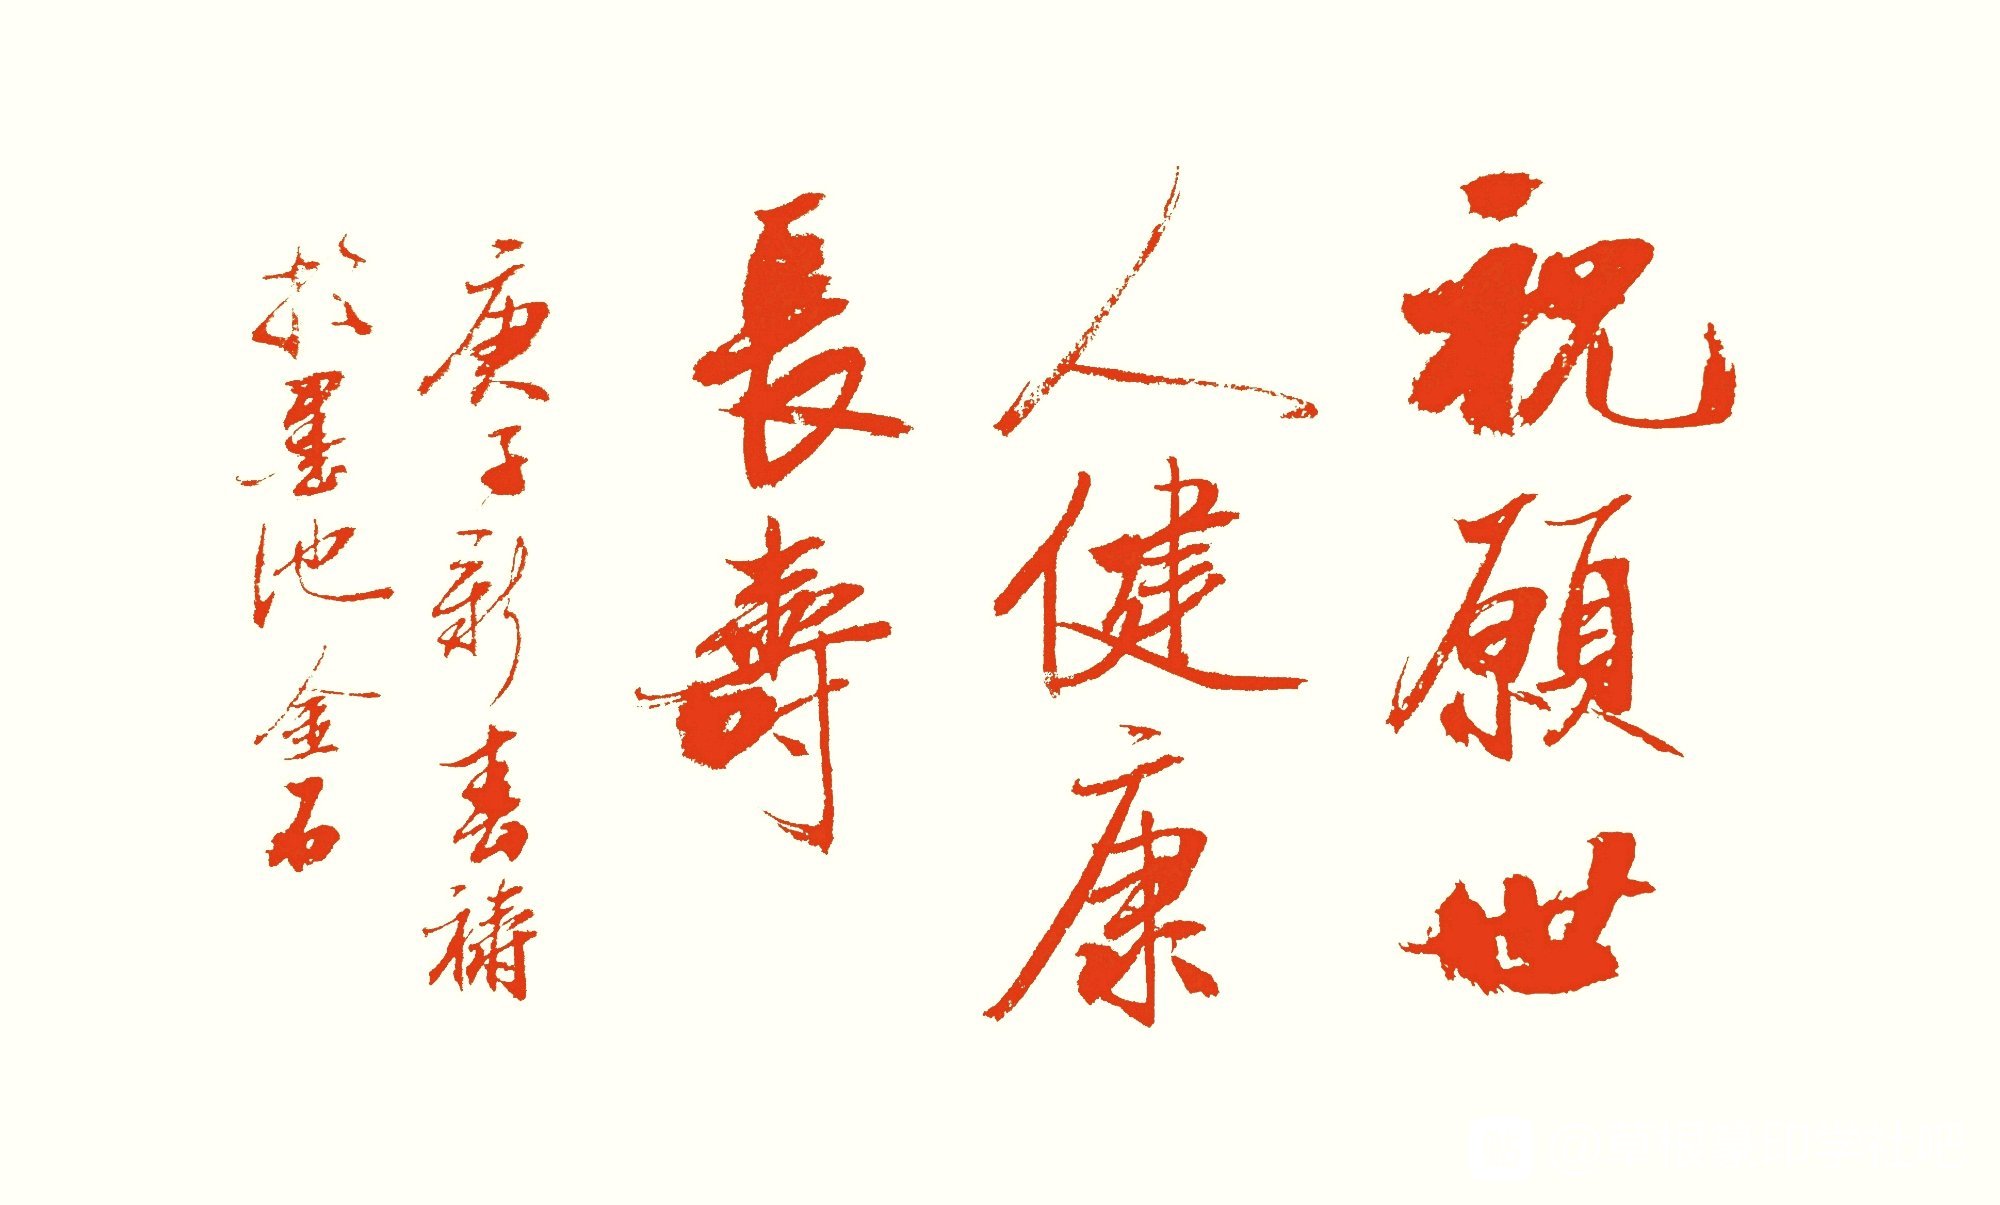 祝願世
人健康
長壽
庚子新春禱
於墨池金石